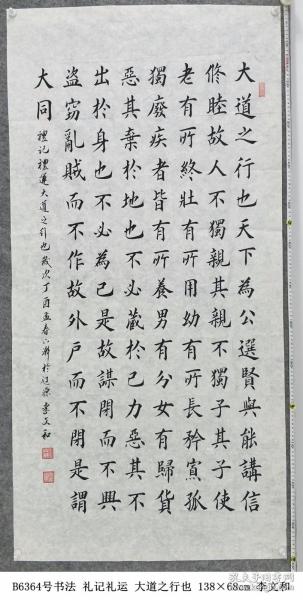 大道之行也天下為公選賢與能講信
脩睦故人不獨親其親不獨子其子使
老有所終壯有所用幼有所長矜寡孤
獨廢疾者皆有所養男有分女有歸貨
惡其棄於地也不必藏於己力惡其不
出於身也不必為己是故謀閉而不興
盜窃亂賊而不作故外戶而不閉是謂
大同
禮記禮運大道之行也歲次丁酉孟春於李文和
B6364号书法 礼记礼运 大道之行也 138×68cm 李文和